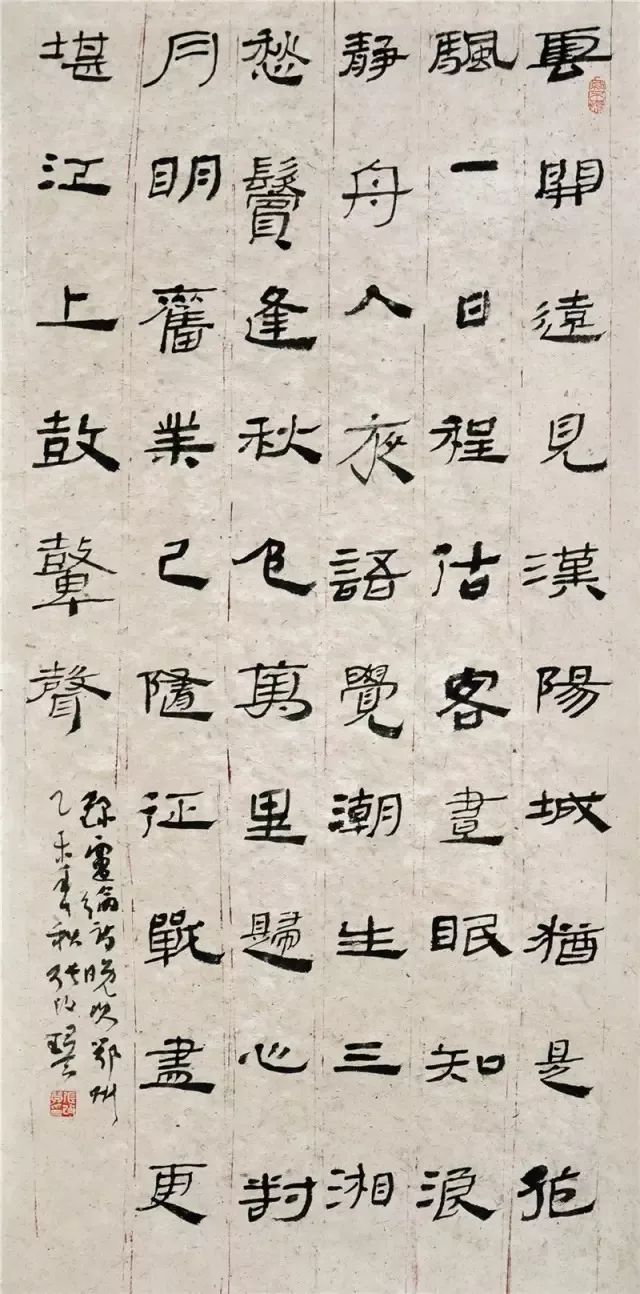 雲開遠見漢陽城猶是孤
颿一日程估客晝眠知浪
靜舟人夜語覺潮生三湘
愁鬢逢秋色萬里歸心對
月明舊業已隨征戰盡更
堪江上鼓鼙聲
盧綸詩晚次鄂州
乙未秋張改琴